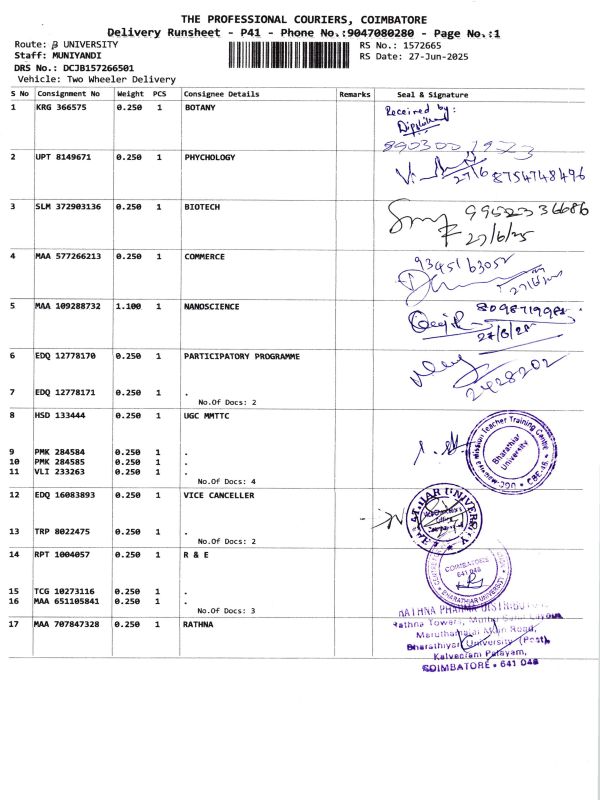 THE PROFESSIONAL COURIERS, COIMBATORE
Delivery Runsheet - P41 - Phone No.:9047080280 - Page No.:1
Route: β UNIVERSITY
RS No.: 1572665
Staff: MUNIYANDI
RS Date: 27-Jun-2025
DRS No.: DCJB157266501
Vehicle: Two Wheeler Delivery
S No Consignment No Weight PCS Consignee Details Remarks Seal & Signature
1 KRG 366575 0.250 1 BOTANY
Received by:
2 UPT 8149671 0.250 1 PHYCHOLOGY
27/6 8754748496
3 SLM 372903136 0.250 1 BIOTECH
9952336686
27/6/25
4 MAA 577266213 0.250 1 COMMERCE
5 MAA 109288732 1.100 1 NANOSCIENCE
27/6/25
6 EDQ 12778170 0.250 1 PARTICIPATORY PROGRAMME
2428202
7 EDQ 12778171 0.250 1 .
No.Of Docs: 2
8 HSD 133444 0.250 1 UGC MMTTC
Teacher Training Centre
Bharathiar
University
9 PMK 284584 0.250 1 .
10 PMK 284585 0.250 1 .
11 VLI 233263 0.250 1 .
No.Of Docs: 4
12 EDQ 16083893 0.250 1 VICE CANCELLER
13 TRP 8022475 0.250 1 .
No.Of Docs: 2
14 RPT 1004057 0.250 1 R & E
COIMBATORE
641 046
BHARATHIAR UNIVERSITY
15 TCG 10273116 0.250 1 .
16 MAA 651105841 0.250 1 .
No.Of Docs: 3
17 MAA 707847328 0.250 1 RATHNA
RATHNA PHARMA DISTRIBUTORS
Rathna Towers,
Maruthamalai Main Road,
Bharathiyar University (Post),
Kalveeram Palayam,
COIMBATORE - 641 046